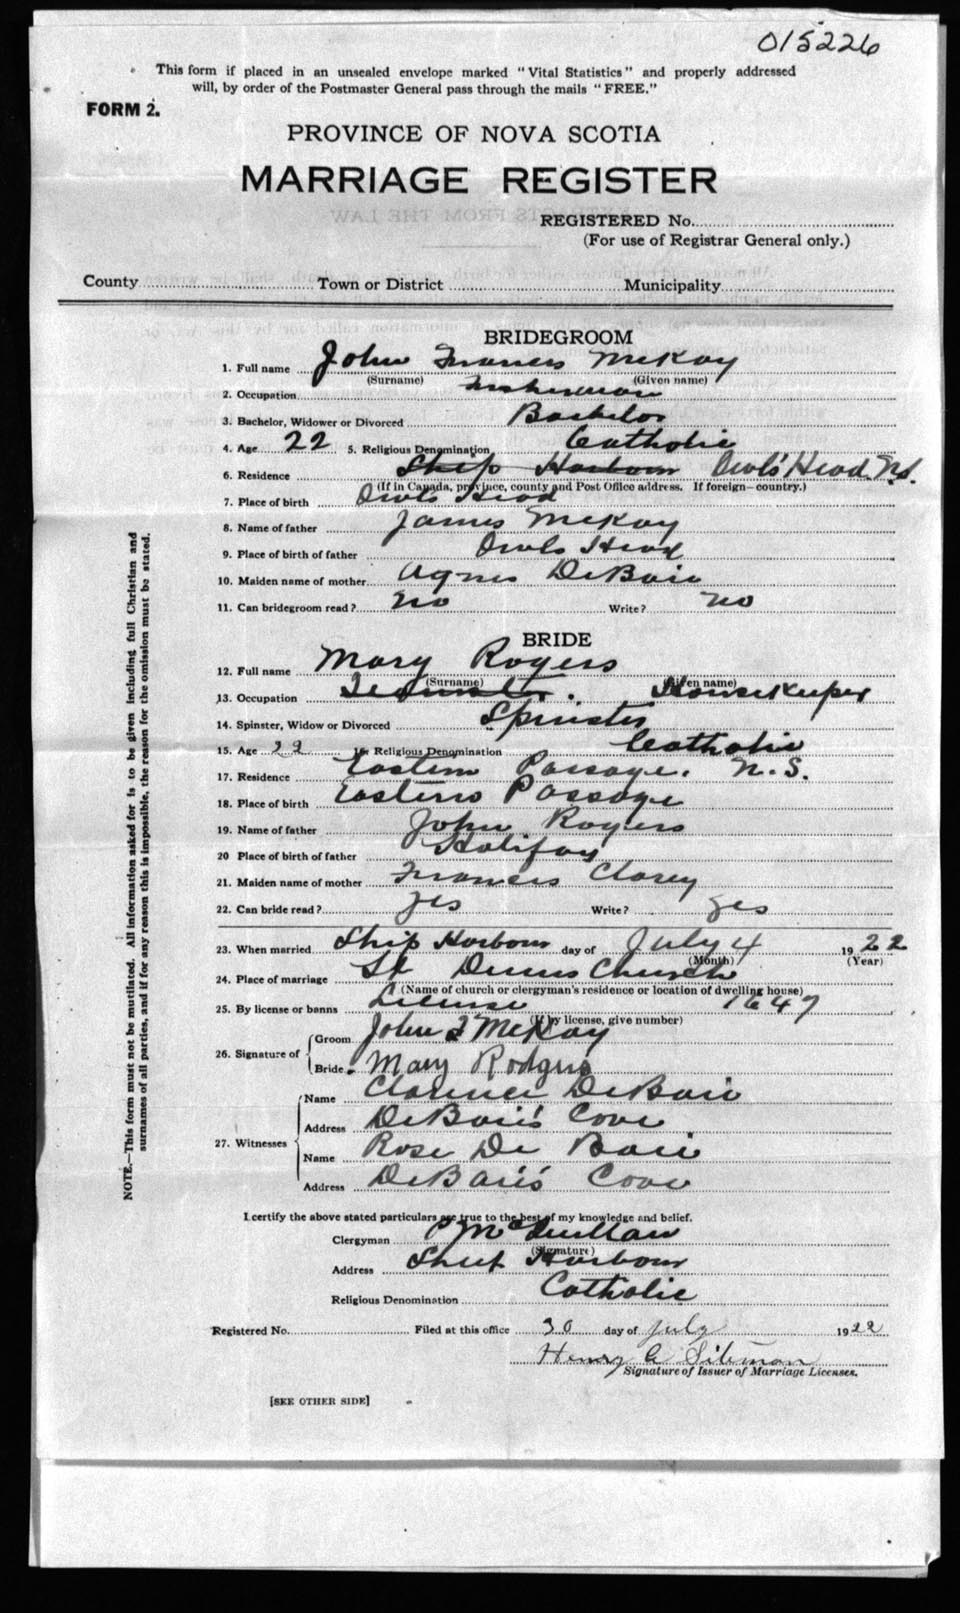 015226
This form if placed in an unsealed envelope marked "Vital Statistics" and properly addressed
will, by order of the Postmaster General pass through the mails "FREE."
FORM 2.
PROVINCE OF NOVA SCOTIA
MARRIAGE REGISTER
REGISTERED No.
(For use of Registrar General only.)
County Town or District Municipality
BRIDEGROOM
1. Full name John Francis McKay
(Surname) (Given name)
2. Occupation Fisherman
3. Bachelor, Widower or Divorced Bachelor
4. Age 22 5. Religious Denomination Catholic
6. Residence Ship Harbour Owls Head N.S.
(If in Canada, province, county and Post Office address. If foreign—country.)
7. Place of birth Owls Head
8. Name of father James McKay
9. Place of birth of father Owls Head
10. Maiden name of mother Agnes DeBaie
11. Can bridegroom read? No Write? no
BRIDE
12. Full name Mary Rogers
(Surname) (Given name)
13. Occupation Housekeeper
14. Spinster, Widow or Divorced Spinster
15. Age 22 16. Religious Denomination Catholic
17. Residence Eastern Passage. N.S.
18. Place of birth Eastern Passage
19. Name of father John Rogers
20 Place of birth of father Halifax
21. Maiden name of mother Frances Clarey
22. Can bride read? yes Write? yes
23. When married Ship Harbour day of July 4 1922
(Month) (Year)
24. Place of marriage St Church
(Name of church or clergyman's residence or location of dwelling house)
25. By license or banns License 1647
(If by license, give number)
26. Signature of Groom John F McKay
Bride Mary Rodgers
27. Witnesses Name Clarence DeBaie
Address DeBaie's Cove
Name Rose De Baie
Address DeBaie's Cove
I certify the above stated particulars are true to the best of my knowledge and belief.
Clergyman
(Signature)
Address Ship Harbour
Religious Denomination Catholic
Registered No. Filed at this office 30 day of July 1922
Henry A Siteman
Signature of Issuer of Marriage Licenses.
[SEE OTHER SIDE]
NOTE.—This form must not be mutilated. All information asked for is to be given including full Christian and
surnames of all parties, and if for any reason this is impossible, the reason for the omission must be stated.